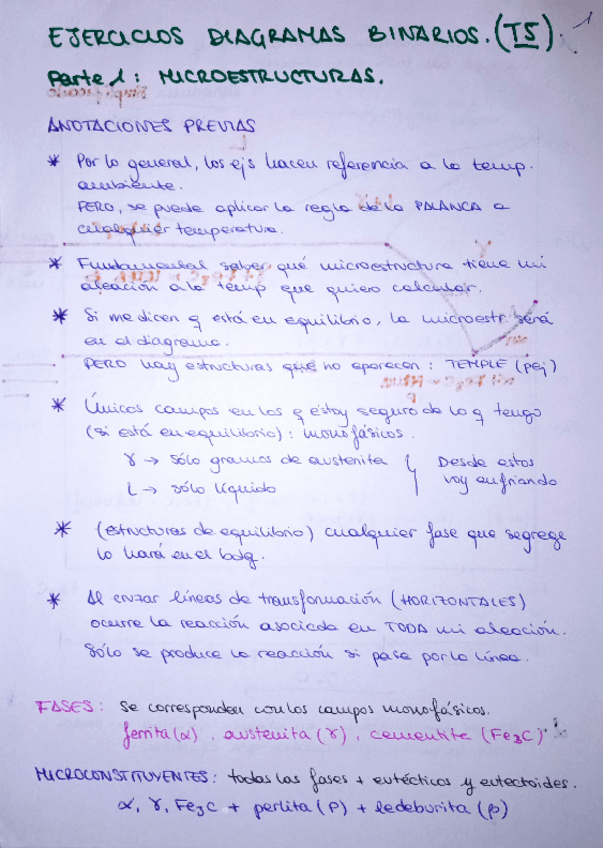 EJERCICIOS DIAGRAMAS BINARIOS. (T5). 1
Parte 1: MICROESTRUCTURAS.
ANOTACIONES PREVIAS
* Por lo general, los ejs hacen referencia a la temp.
ambiente.
PERO, se puede aplicar la regla de la PALANCA a
cualquier temperatura.
* Fundamental saber qué microestructura tiene mi
aleación a la temp que quiero calcular.
* Si me dicen q está en equilibrio, la microestr. será
en el diagrama.
PERO hay estructuras que no aparecen: TEMPLE (pej)
* Únicos campos en los q estoy seguro de lo q tengo
(si está en equilibrio): monofásicos.
γ → Sólo granos de austenita
L → sólo líquido
Desde estos
voy enfriando
* (estructuras de equilibrio) cualquier fase que segrege
lo hará en el bdg.
* Al cruzar líneas de transformación (HORIZONTALES)
ocurre la reacción asociada en TODA mi aleación.
Sólo se produce la reacción si pasa por la línea.
FASES: Se corresponden con los campos monofásicos.
ferrita (α), austenita (γ), cementita (Fe3C).
MICROCONSTITUYENTES: todas las fases + eutécticos y eutectoides.
α, γ, Fe3C + perlita (P) + ledeburita (β)